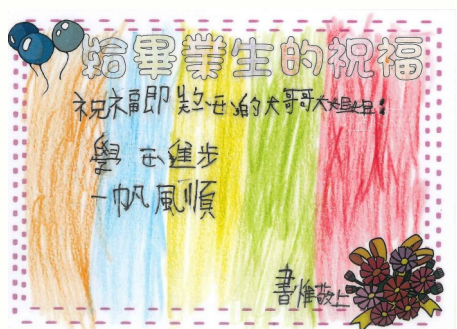 給畢業生的祝福
祝福即畢业的大哥哥大姐姐：
學业進步
一帆風順
書惟敬上